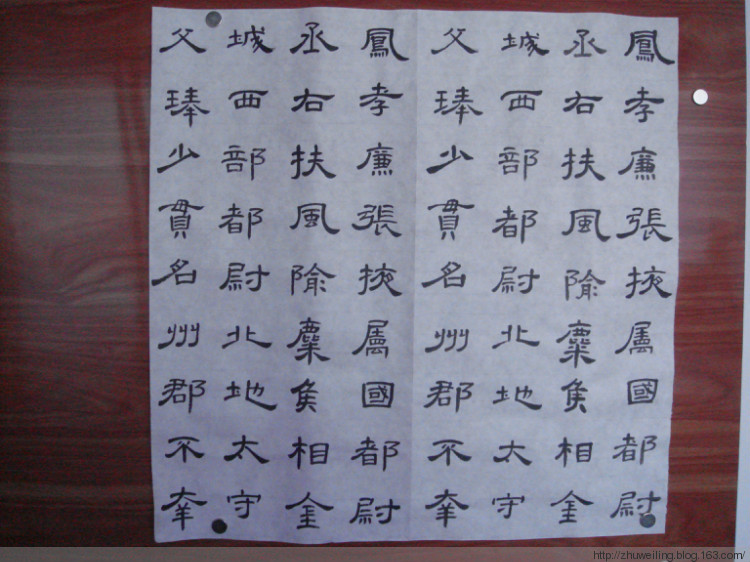 鳳孝廉張掖屬國都尉
丞右扶風隃麋侯相金
城西部都尉北地太守
父琫少貫名州郡不幸
鳳孝廉張掖屬國都尉
丞右扶風隃麋侯相金
城西部都尉北地太守
父琫少貫名州郡不幸
http://zhuweiling.blog.163.com/